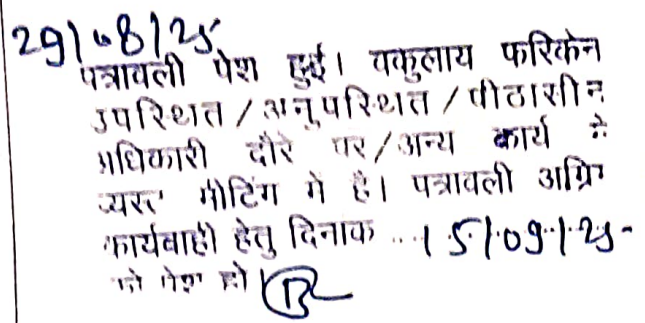 29/08/25
पत्रावली पेश हुई। वकुलाय फरिकेन
उपस्थित/अनुपस्थित/पीठासीन
अधिकारी दौरे पर/अन्य कार्य में
व्यस्त मीटिंग में है। पत्रावली अग्रिम
कार्यवाही हेतु दिनाक ..15/09/25-
को पेश हो